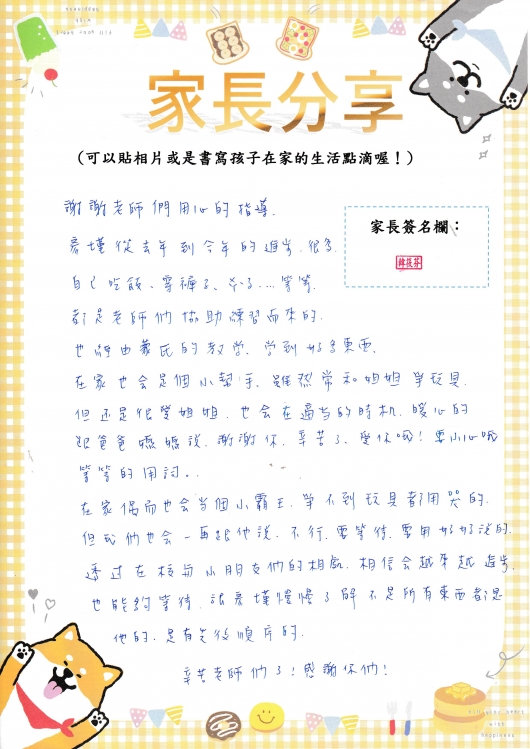 家長分享
(可以貼相片或是書寫孩子在家的生活點滴喔!)
家長簽名欄:
謝謝老師們用心的指導.
從去年到今年的進步.很多.
自己吃飯、穿褲子、ㄙㄙ....等等.
都是老師们協助練習而來的.
也經由蒙氏的教学.学到好多東西.
在家也会是個小幫手.雖然常和姐姐爭玩具.
但还是很愛姐姐.也会在適当的時机.暖心的
跟爸爸媽媽說.謝謝你.辛苦了.愛你哦!要小心哦
等等的用詞..
在家偶而也会当個小霸王.爭不到玩具都用哭的.
但我們也会一再跟他說.不行.要等待.要用好好說的.
透过在校与小朋友們的相處.相信会越來越進步.
也能夠等待.讓彥瑾慢慢了解不是所有東西都是
他的.是有先後順序的.
辛苦老師們了!感謝你们!